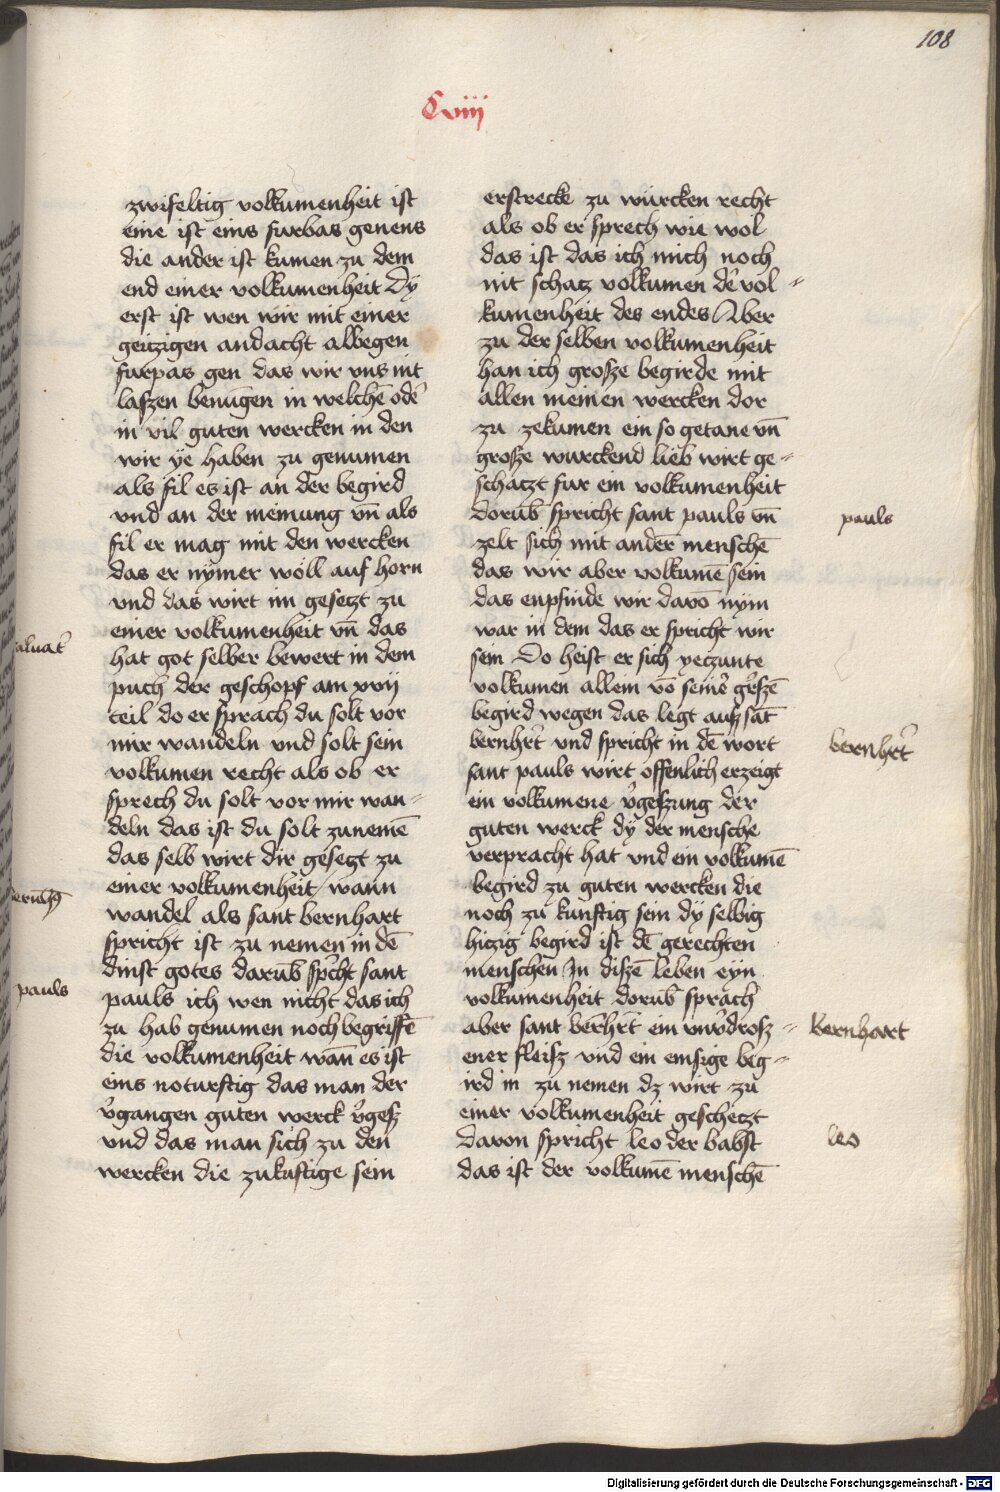 108
Cviij
zwifeltig volkumenheit ist
eine ist eins furbas genens
die ander ist kumen zu dem
end einer volkumenheit Dÿ
erst ist wen wir mit einer
geitzigen andacht albegen
furpas gen das wir vns nit
laſzen benugen in welchē odē
in vil guten wercken in den
wir ÿe haben zu genumen
als fil es ist an der begird
vnd an der meinung vn̄ als
fil er mag mit den wercken
das er nÿmer wöll auf horn
vnd das wirt im gesetzt zu
einer volkumenheit vn̄ das
hat got selber bewert in dem
puch der geschopf am xvij
teil do er sprach du solt vor
mir wandeln vnd solt sein
volkumen recht als ob er
sprech du solt vor mir wan=
deln das ist du solt zunemē
das selb wirt dir gesetzt zu
einer volkumenheit wann
wandel als sant bernhart
spricht ist zu nemen in dē
dinst gotes darub̄ sp̄cht sant
pauls ich wen nicht das ich
zu hab genumen noch begriffē
die volkumenheit wān es ist
eins noturftig das man der
v̄gangen guten werck v̄gesz
vnd das man sich zu den
wercken die zukūftige sein
pauls
erstrecke zu würcken recht
als ob er sprech wie wol
das ist das ich mich noch
nit schatz volkumen dē vol=
kumenheit des endes Aber
zu der selben volkumenheit
han ich grosze begirde mit
allen meinen wercken dor
zu zekumen ein so getane vn̄
grosze wurckend lieb wirt ge=
schatzt fur ein volkumenheit
dorub̄ spricht sant pauls vn̄
zelt sich mit andern̄ menschē
das wir aber volkumē sein
das enpfinde wir davō nÿm
war in dem das er spricht wir
sein Do heist er sich yeczunte
volkumen allein vō seinē gr̄szē
begird wegen das legt ausz sāt
bernhr̄t vnd spricht in dē wort
sant pauls wirt offenlich erzeigt
ein volkumene v̄geszung der
guten werck dÿ der mensche
verpracht hat vnd ein volkumē
begird zu guten wercken die
noch zu kunftig sein dÿ selbig
hiczig begird ist dē gerechten
menschen In diszē leben eyn
volkumenheit dorub̄ sprach
aber sant ber̄hrt̄ ein vnv̄drosz=
ener fleisz vnd ein emsige beg=
ird in zu nemen dz wirt zu
einer volkumenheit geschetzt
davon spricht leo der babst
das ist der volkumē menschē
pauls
bernhr̄t
bernhart
leo
Digitalisierung gefördert durch die Deutsche Forschungsgemeinschaft - DFG